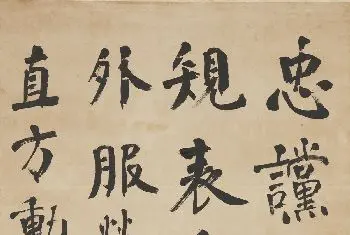 忠讜
規表
外服
直方動